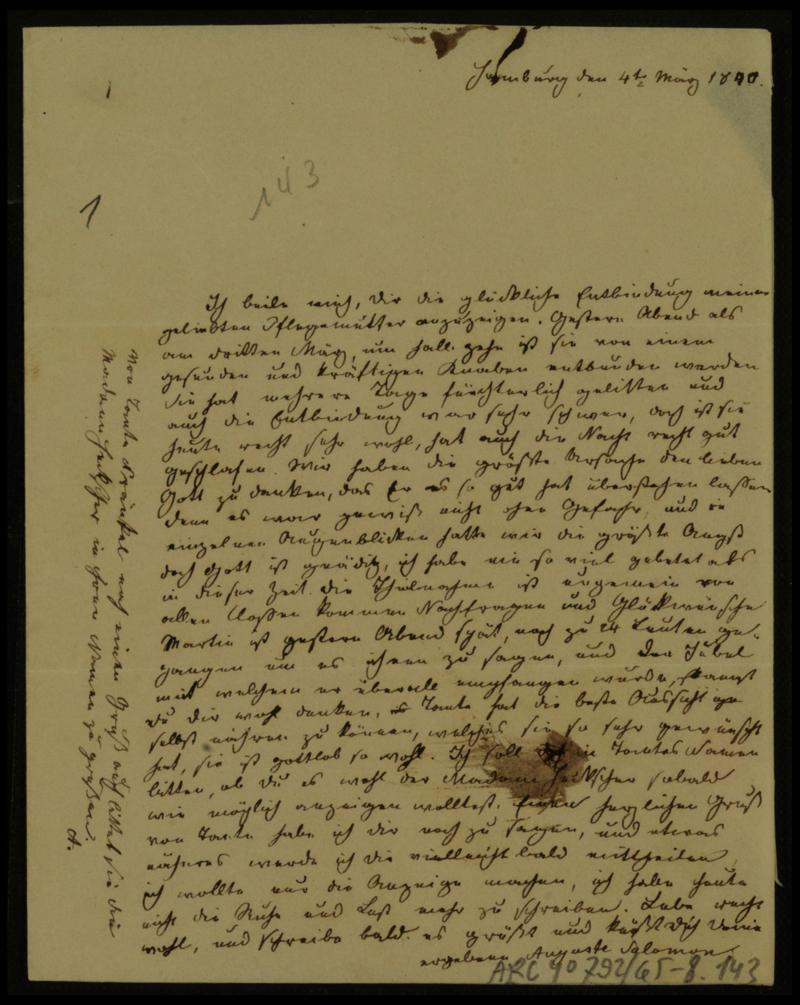 Hamburg den 4ten März 1840.
143
1
Ich beeile mich, Dir die glückliche Entbindung meiner
geliebten Pflegemutter anzuzeigen. Gestern Abend als
am dritten März, um halb zehn ist sie von einem
gesunden und kräftigen Knaben entbunden worden
Sie hat mehrere Tage fürchterlich gelitten und
auch die Entbindung war sehr schwer, doch ist sie
heute recht sehr wohl, hat auch die Nacht recht gut
geschlafen. Wir haben die größte Ursache den lieben
Gott zu danken, das Er es so gut hat überstehen lassen
denn es war gewiß nicht ohne Gefahr, und in
einzelnen Augenblicken hatte wir die größte Angst
doch Gott ist gnädig, ich habe nie so viel gebetet als
in dieser Zeit. die Theilnahme ist ungemein von
allen Classen kommen Nachfragen und Glückwünsche
Martin ist gestern Abend spät, noch zu 24 Leuten ge-
gangen um es ihnen zu sagen, und der Jubel
mit welchem er überall empfangen wurde, kannst
du dir wohl denken, Tante hat die beste Aussicht
selbst nähren zu können, welches sie so sehr gewünscht
hat, sie ist gottlob so wohl. Ich soll in Tantes Namen
bitten, ob Du es wohl der Madame sobald
wie möglich anzeigen wolltest. Einen herzlichen Gruß
von Tante habe ich dir noch zu sagen, und etwas
näheres werde ich dir vielleicht bald mittheilen
ich wollte nur die Anzeige machen, ich habe heute
nicht die Ruhe und Lust mehr zu schreiben. Lebe recht
wohl, und schreibe bald. es grüßt und küßt Dich Deine
ergebene Auguste Salomon
Von Tante Fränkel noch einen Gruß auch bittet sie die
Madame in ihren Namen zu grüßen.
A.
ARC 4o 792/G5-8. 143